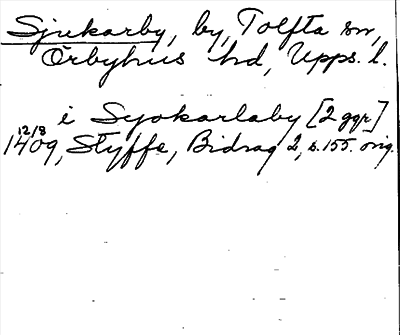 Sjukarby, by, Tolfta sn,
Örbyhus hd, Upps. l.
i Syokarlaby [2 ggr]
12/8
1409, Styffe, Bidrag 2, s. 155. orig.